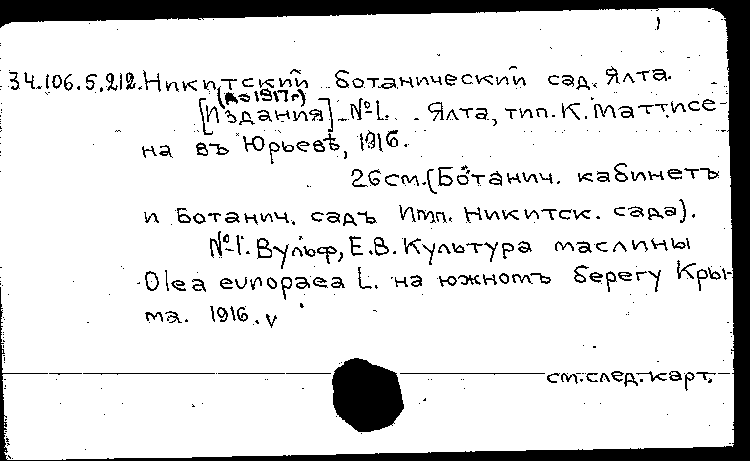 34.106.5.212. Никитский ботанический сад. Ялта.
(до 1917 г.)
[Издания] №1. Ялта, тип. К. Маттисе-
на въ Юрьевѣ, 1916.
26 см. (Ботанич. кабинетъ
и Ботанич. садъ Имп. Никитск. сада).
№1. Вульф, Е.В. Культура маслины
Olea europaea L. на южномъ берегу Кры-
ма. 1916. v
см. след. карт.